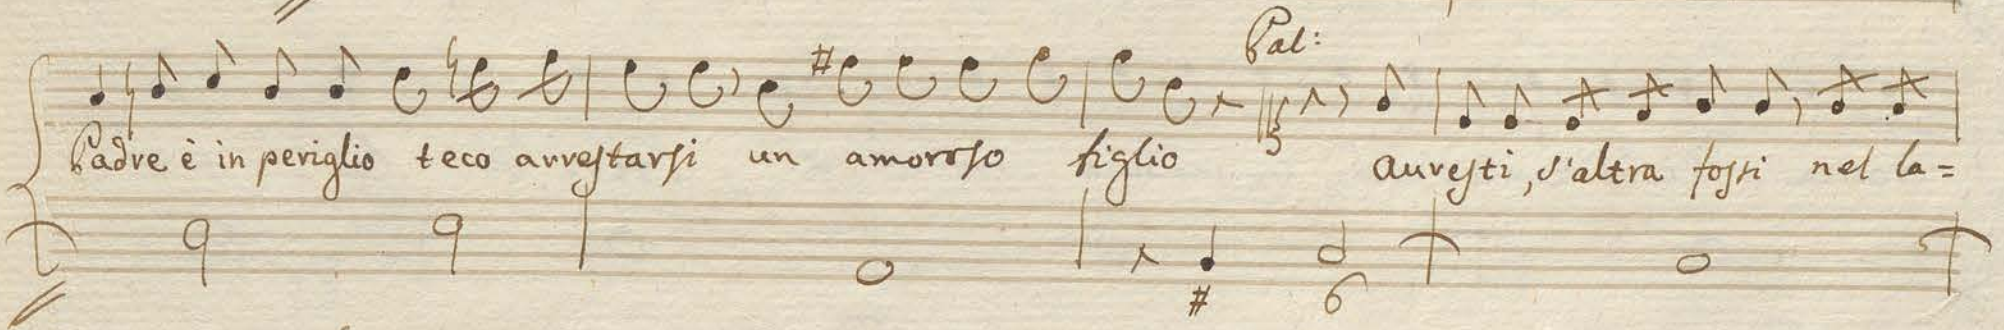 Pal:
Padre è in periglio teco arrestarsi un amoroso figlio auresti, s'altra fossi nel la=
# 6